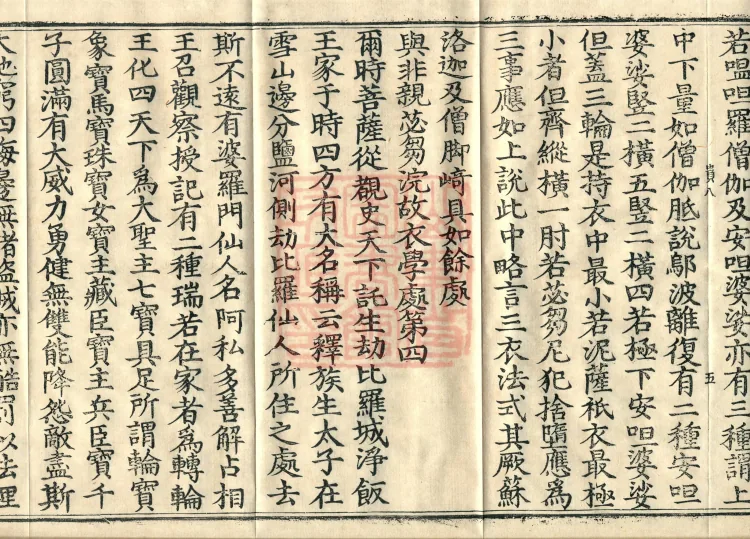 若嗢呾羅僧伽及安呾婆娑亦有三種謂上
中下量如僧伽胝說鄔波離復有二種安呾
婆娑豎二橫五豎二橫四若極下安呾婆娑
但蓋三輪是持衣中最小若泥薩祇衣最極
小者但齊縱橫一肘若苾芻尼犯捨墮應爲
三事應如上說此中略言三衣法式其厥蘇
洛迦及僧脚崎具如餘處
與非親苾芻浣故衣學處第四
爾時菩薩從覩史天下託生劫比羅城淨飯
王家于時四方有大名稱云釋族生太子在
雪山邊分鹽河側劫比羅仙人所住之處去
斯不遠有婆羅門仙人名阿私多善解占相
王召觀察授記有二種瑞若在家者爲轉輪
王化四天下爲大聖主七寶具足所謂輪寶
象寶馬寶珠寶女寶主藏臣寶主兵臣寶千
子圓滿有大威力勇健無雙能降怨敵盡斯
大地窮四海邊無諸盜賊亦無酷罰以法理
八
五